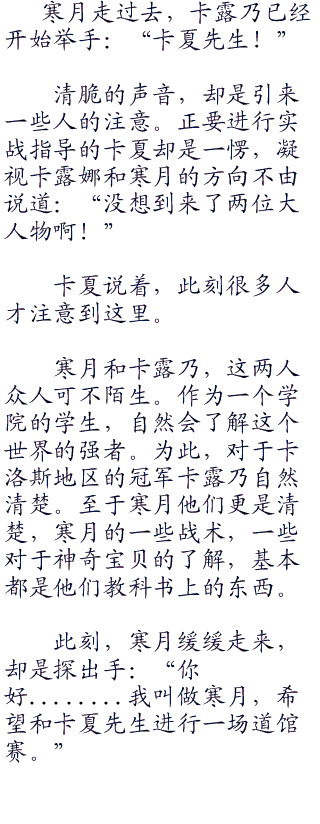 寒月走过去，卡露乃已经
开始举手：“卡夏先生！”
清脆的声音，却是引来
一些人的注意。正要进行实
战指导的卡夏却是一愣，凝
视卡露娜和寒月的方向不由
说道：“没想到来了两位大
人物啊！”
卡夏说着，此刻很多人
才注意到这里。
寒月和卡露乃，这两人
众人可不陌生。作为一个学
院的学生，自然会了解这个
世界的强者。为此，对于卡
洛斯地区的冠军卡露乃自然
清楚。至于寒月他们更是清
楚，寒月的一些战术，一些
对于神奇宝贝的了解，基本
都是他们教科书上的东西。
此刻，寒月缓缓走来，
却是探出手：“你
好........我叫做寒月，希
望和卡夏先生进行一场道馆
赛。”